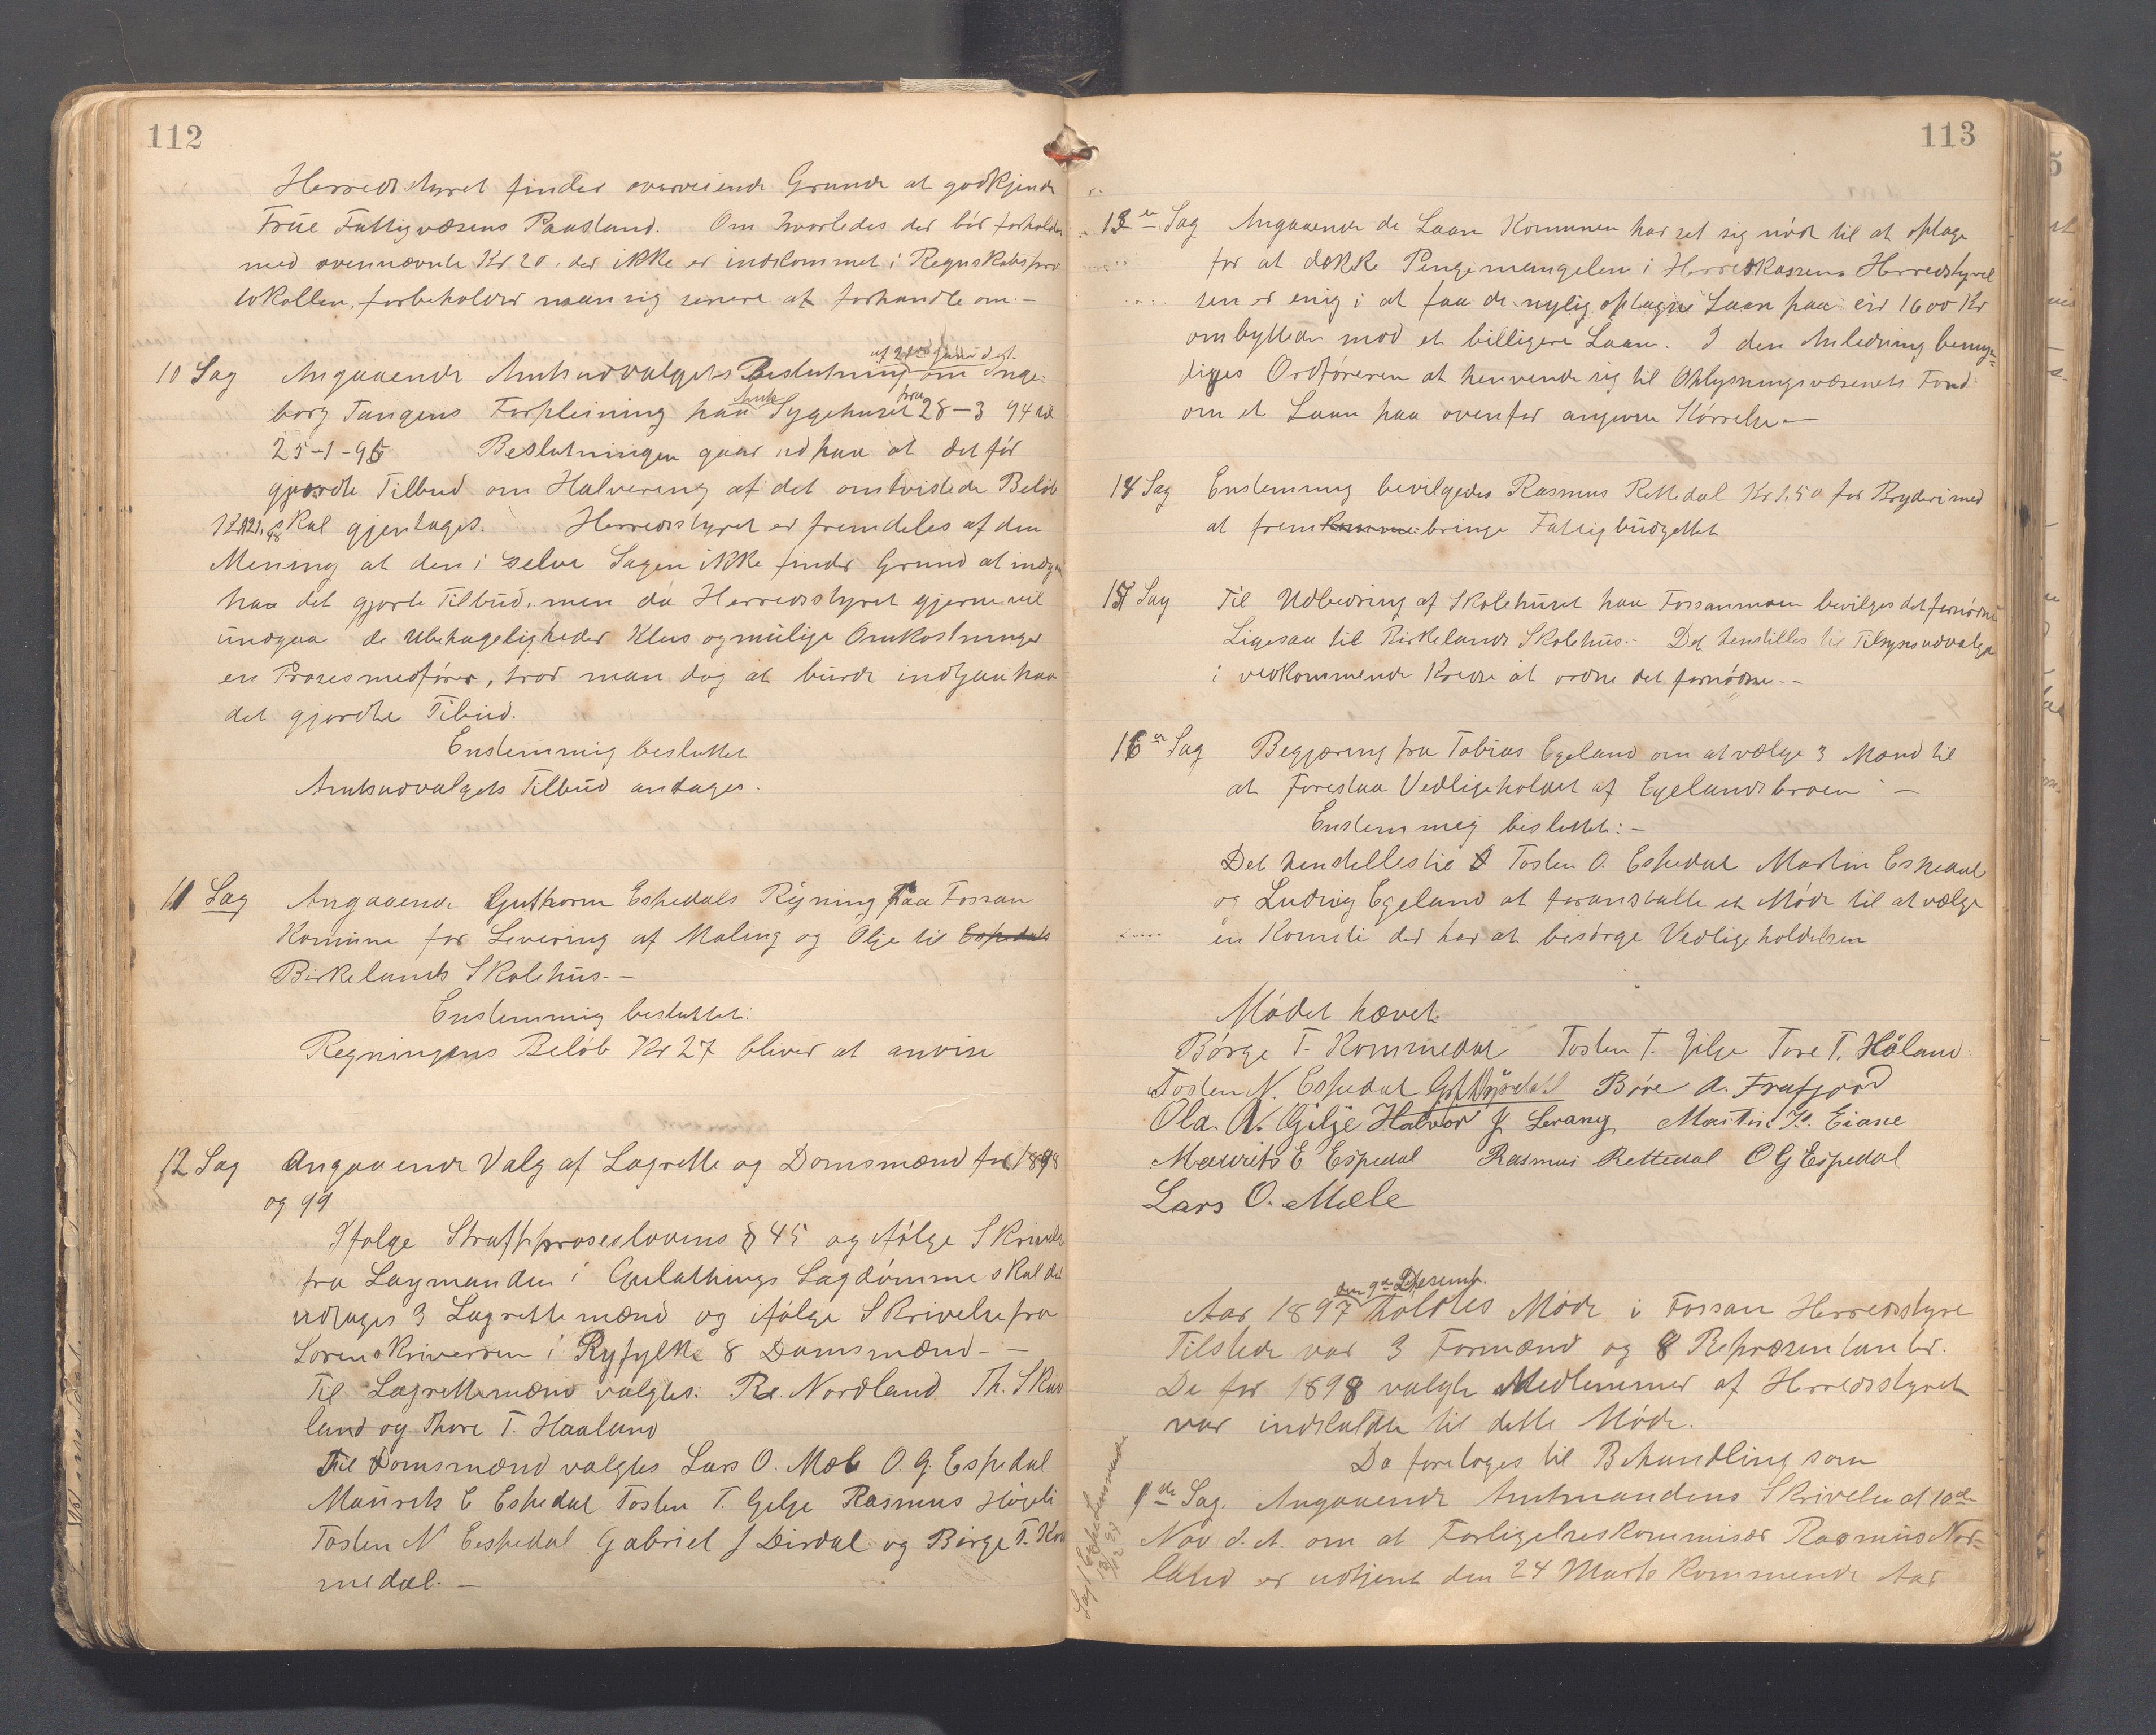 112
Herredsstyret finder overveiende Grunde at godkjende
Frue Fattigvæsens Paastand. Om hvorledes der bør forholdes
med ovennævnte Kr 20, der ikke er indkommet i Regnskabspro
tokollen, forbeholder man sig senere at forhandle om.-
10 Sag Angaaende Amtsudvalgets Beslutning af 21de Juni d.A. om Inge-
borg Tangens Forpleining paa Sygehuset fra 28-3 94 til
25-1-95 Beslutningen gaar ud paa at det før
gjorde Tilbud om Halvering af det omtvistede Beløb
skal gjentages. Herredsstyret er fremdeles af den
Mening at den i selve Sagen ikke finder Grund at indgaa
paa det gjorte Tilbud, men da Herredsstyret gjerne vil
undgaa de Ubehageligheder Klus og mulige Omkostninger
en Proses medfører, tror man dog at burde indgaa paa
det gjordte Tilbud.
Enstemmig besluttet
Amtsudvalgets Tilbud andtages.
11 Sag Angaaende Guthorm Espedals Regning paa Fossan
Komune for Levering af Maling og Olje til Espedals
Birkelands Skolehus.-
Enstemmig besluttet:
Regningens Beløb Kr 27 bliver at anvise
12 Sag Angaaende Valg af Lagrette og Domsmænd for 1898
og 99
Ifølge Straffproseslovens § 45 og ifølge Skrivelse
fra Lagmanden i Gulathings Lagdømme skal der
udtages 3 Lagrettemænd og ifølge Skrivelse fra
Sorenskriveren i Ryfylke 8 Domsmænd--
Til Lagrettemænd valgtes: Rs. Nordland Th. Skav
land og Thore T. Haaland
Til Domsmænd valgtes Lars O. Mæle O. G. Espedal
Maurits E Espedal Tosten T. Gilje Rasmus Høgeli
Tosten N Espedal Gabriel J Dirdal og Børge T. Kom
medal.-
113
13de Sag Angaaende de Laan Komunen har set sig nødt til at optage
for at dække Pengemangelen i Herredskassens Herredstyrel
sen er enig i at faa de nylig optagne Laan paa cir 1600 Kr
ombyttede mod et billigere Laan. I den Anledning bemyn-
diges Ordføreren at henvende sig til Oplysningsvæsenets Fond
om et Laan paa ovenfor angivne Størrelse.-
14 Sag Enstemmig bevilgedes Rasmus Rettedal Kr 1,50 for Bryderi med
at fremkomme bringe Fattigbudgettet
15 Sag Til Udbedring af Skolehuset paa Fossanmoen bevilges det fornødne
Ligesaa til Birkelands Skolehus.- Det henstilles til Tilsynsudvalget
i vedkommende Kredse at ordne det fornødne.-
16de Sag Begjæring fra Tobias Egeland om at vælge 3 Mænd til
at Forestaa Vedligeholdet af Egelandsbroen -
Enstemmig besluttet:-
Det henstilles til Tosten O. Espedal Martin Espedal
og Ludvig Egeland at foranstalte et Møde til at vælge
en Komite der har at besørge Vedligeholdelsen
Mødet hævet.
Børge T. Kommedal Tosten T. Gilje Tore T. Håland
Tosten N. Espedal Børe A. Frafjord
Ola. A. Gilje Halvor J Levang Martin Js. Eiane
Maurits E Espedal Rasmus Rettedal O G Espedal
Lars O. Mæle
Aar 1897 den 9de Desemb. holdtes Møde i Fossan Herredsstyre
Tilstede var 3 Formænd og 8 Repræsentanter.
De for 1898 valgte Medlemmer af Herredsstyret
var indkaldte til dette Møde.
Da foretoges til Behandling som
1de Sag. Angaaende Amtmandens Skrivelse af 10de
Nov d.A. om at Forligelseskommisær Rasmus Nor-
land er udtjent den 24 Marts kommende Aar